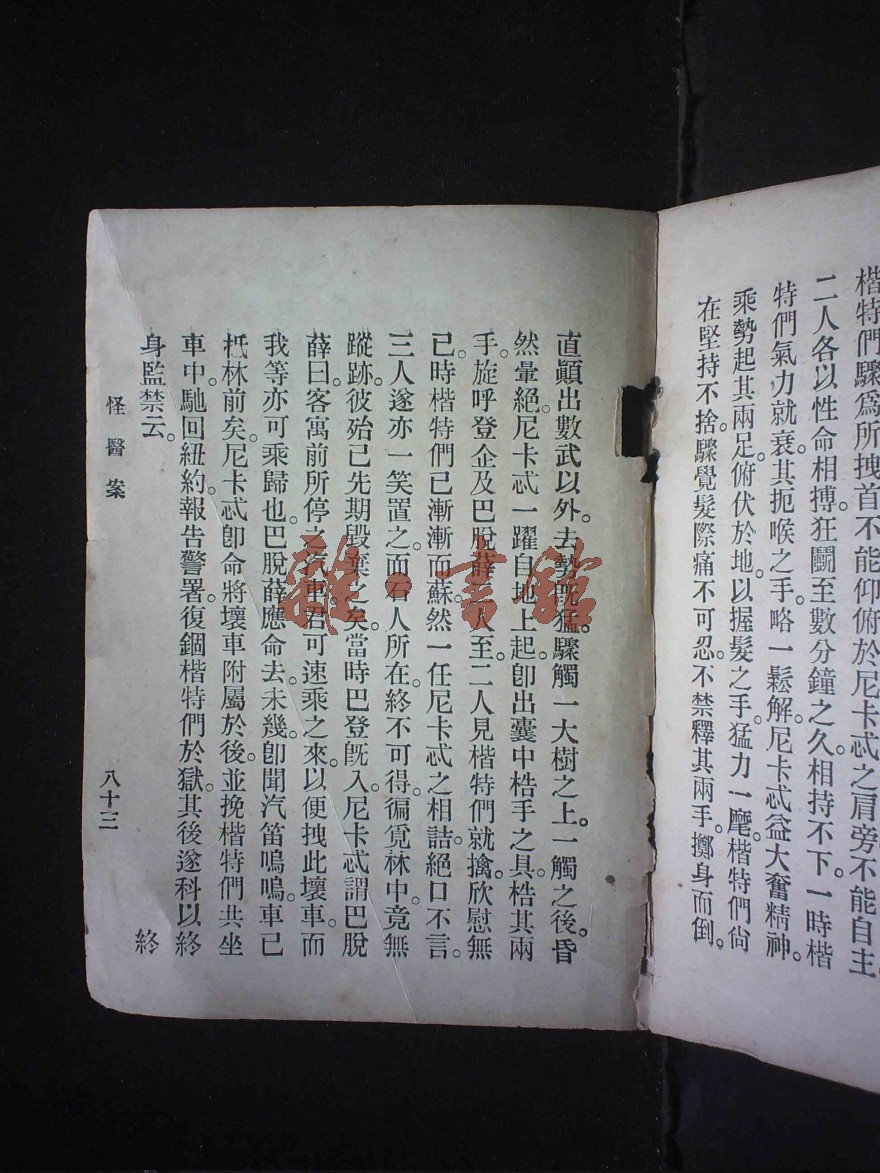 楷特們驟爲所拽首不能仰俯於尼卡忒之肩旁不能自主。
二人各以性命相搏狂鬭至數分鐘之久相持不下一時楷
特們氣力就衰。其扼喉之手略一鬆解。尼卡忒益大奮精神。
乘勢起其兩足俯伏於地。以握髮之手猛力一麾。楷特們尙
在堅持不捨。驟覺髮際痛不可忍。不禁釋其兩手。擲身而倒。
直顚出數武以外。去勢旣猛。驟觸一大樹之上。一觸之後。昏
然暈絕。尼卡忒一躍自地上起。卽出囊中梏手之具。梏其兩
手。旋呼登企及巴脫薛二人至。二人見楷特們就擒。欣慰無
已。時楷特們已漸漸而蘇。然一任尼卡忒之相詰。絕口不言。
三人遂亦一笑置之。而石人所在。終不可得。徧覓林中。竟無
蹤跡。彼殆已先期毀棄之矣。當時巴登旣入。尼卡忒謂巴脫
薛曰。客寓前所停之汽車。君可速乘之來。以便拽此壞車。而
我等亦可乘歸也。巴脫薛應命去。未幾。卽聞汽笛嗚嗚。車已
柢林前矣。尼卡忒卽命將壞車附屬於後。並挽楷特們共坐
車中。馳回紐約。報告警署。復錮楷特們於獄。其後遂科以終
身監禁云。
終
怪醫案
八十三
雜·書館